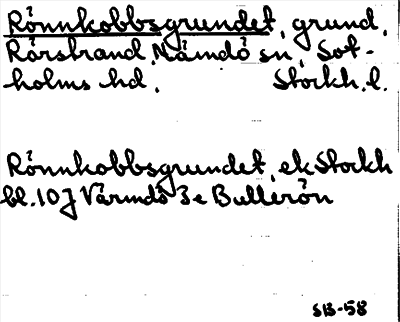 Rönnkobbsgrundet, grund,
Rörstrand, Nämdö sn, Sot-
holms hd, Stockh.l.
Rönnkobbsgrundet, ek Stockh
bl. 10J Värmdö 3e Bullerön
SB-58